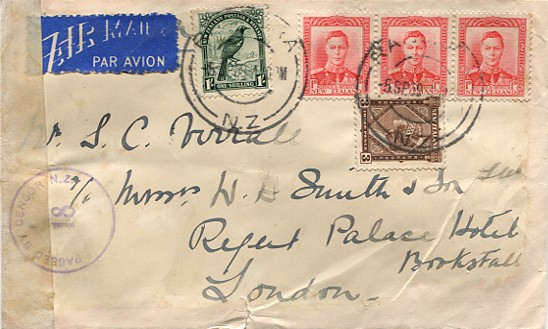 AIR MAIL
PAR AVION
NEW ZEALAND POSTAGE & REVENUE
1/- ONE SHILLING 1/-
NEW ZEALAND
N.Z.
N.Z.
3
Mr. S. C.
c/o Messrs W. H. Smith & Son Ltd
Regent Palace Hotel
Bookstall
London
PASSED BY CENSOR N.Z.
18